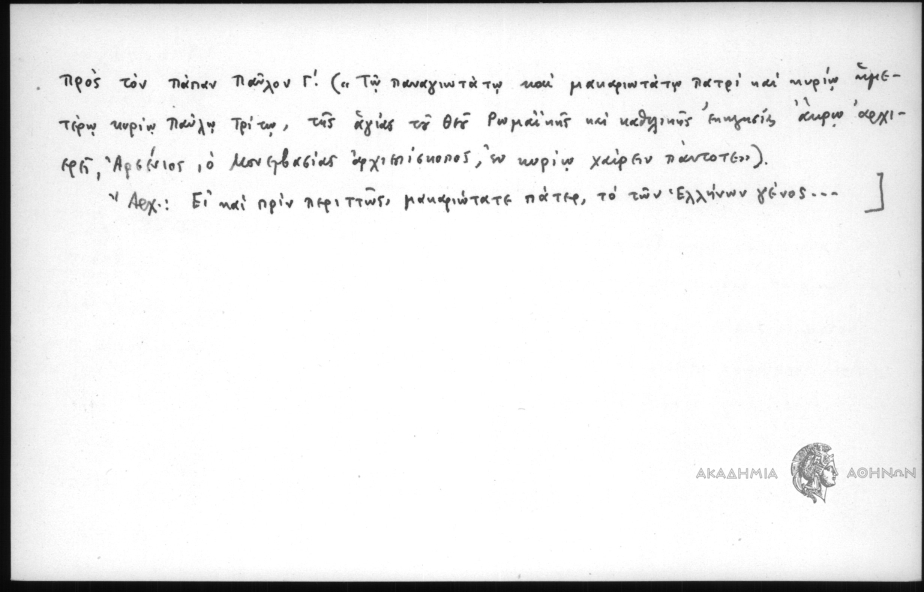 πρὸς τὸν πάπαν Παῦλον Γ΄. («Τῷ παναγιωτάτῳ καὶ μακαριωτάτῳ πατρὶ καὶ κυρίῳ ἡμε-
τέρῳ κυρίῳ Παύλῳ τρίτῳ, τῆς ἁγίας τοῦ Θεοῦ Ρωμαϊκῆς καὶ καθολικῆς ἐκκλησίας ἄκρῳ ἀρχι-
ερεῖ, Ἀρσένιος, ὁ Μονεμβασίας ἀρχιεπίσκοπος, ἐν κυρίῳ χαίρειν πάντοτε»).
Ἀρχ.: Εἰ καὶ πρὶν περιττῶς, μακαριώτατε πάτερ, τὸ τῶν Ἑλλήνων γένος... ]
ΑΚΑΔΗΜΙΑ ΑΘΗΝΩΝ